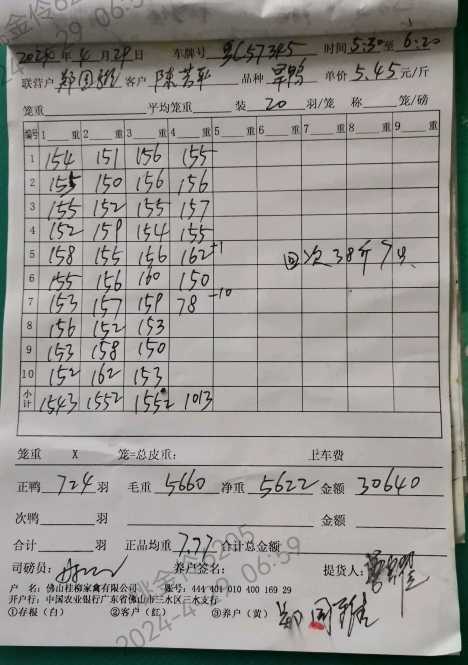 2024年4月29日 车牌号 时间5:30至6:20
联营户 郑国雄 客户 品种 旱鸭 单价 5.45 元/斤
笼重 平均笼重 装 20 羽/笼 称 笼/磅
编号 1 重 2 重 3 重 4 重 5 重 6 重 7 重 8 重 9 重
1 154 151 156 155
2 155 150 156 156
3 155 152 155 157
4 152 159 154 155
5 158 155 156 162 +1 回次38斤7只
6 155 156 160 150
7 153 157 159 78 -10
8 156 152 153
9 153 158 150
10 152 162 153
小计 1543 1552 1552 1013
笼重 X 笼=总皮重: 上车费
正鸭 724 羽 毛重 5660 净重 5622 金额 30640
次鸭 羽 金额
合计 羽 正品均重 7.77 合计总金额
司磅员: 养户签名: 提货人:
户 名: 佛山桂柳家禽有限公司 账号: 444 401 010 400 169 29
开户行: 中国农业银行广东省佛山市三水区三水支行
①存根（白） ②客户（红） ③养户（黄） 郑国雄
2024-4-29 06:59